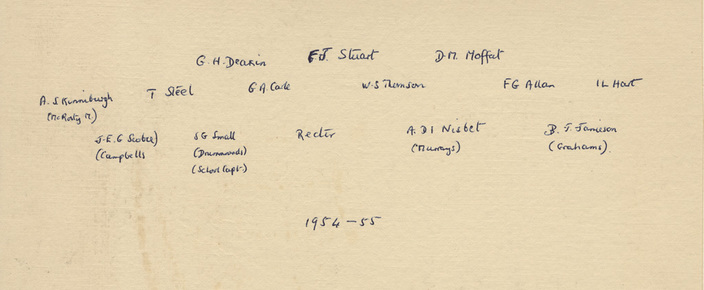 G.H. Deakin F.J. Stuart D.M. Moffat
A.S Kinninburgh T Steel G A. Carle W.S Thomson F G Allan I L Hart
J.E.G
(Campbells
S G Small
(Drummonds)
(School Capt.)
Rector
A. D I Nisbet
(Murrays)
B. J. Jamieson
(Grahams)
1954-55